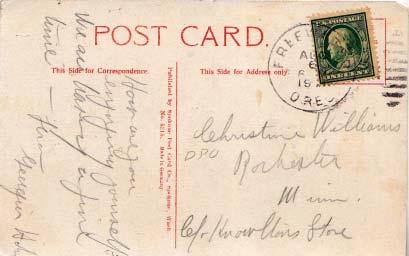 POST CARD.
This Side for Correspondence.
This Side for Address only.
How are you
enjoying yourself
We are having a fine
time
Georgia
Published by Spokane Post Card Co., Spokane, Wash.
No. 5215. Made in Germany.
ORE
U.S. POSTAGE
ONE CENT
Christine Williams
DPO
Rochester
Minn.
C/o Knowltons Store